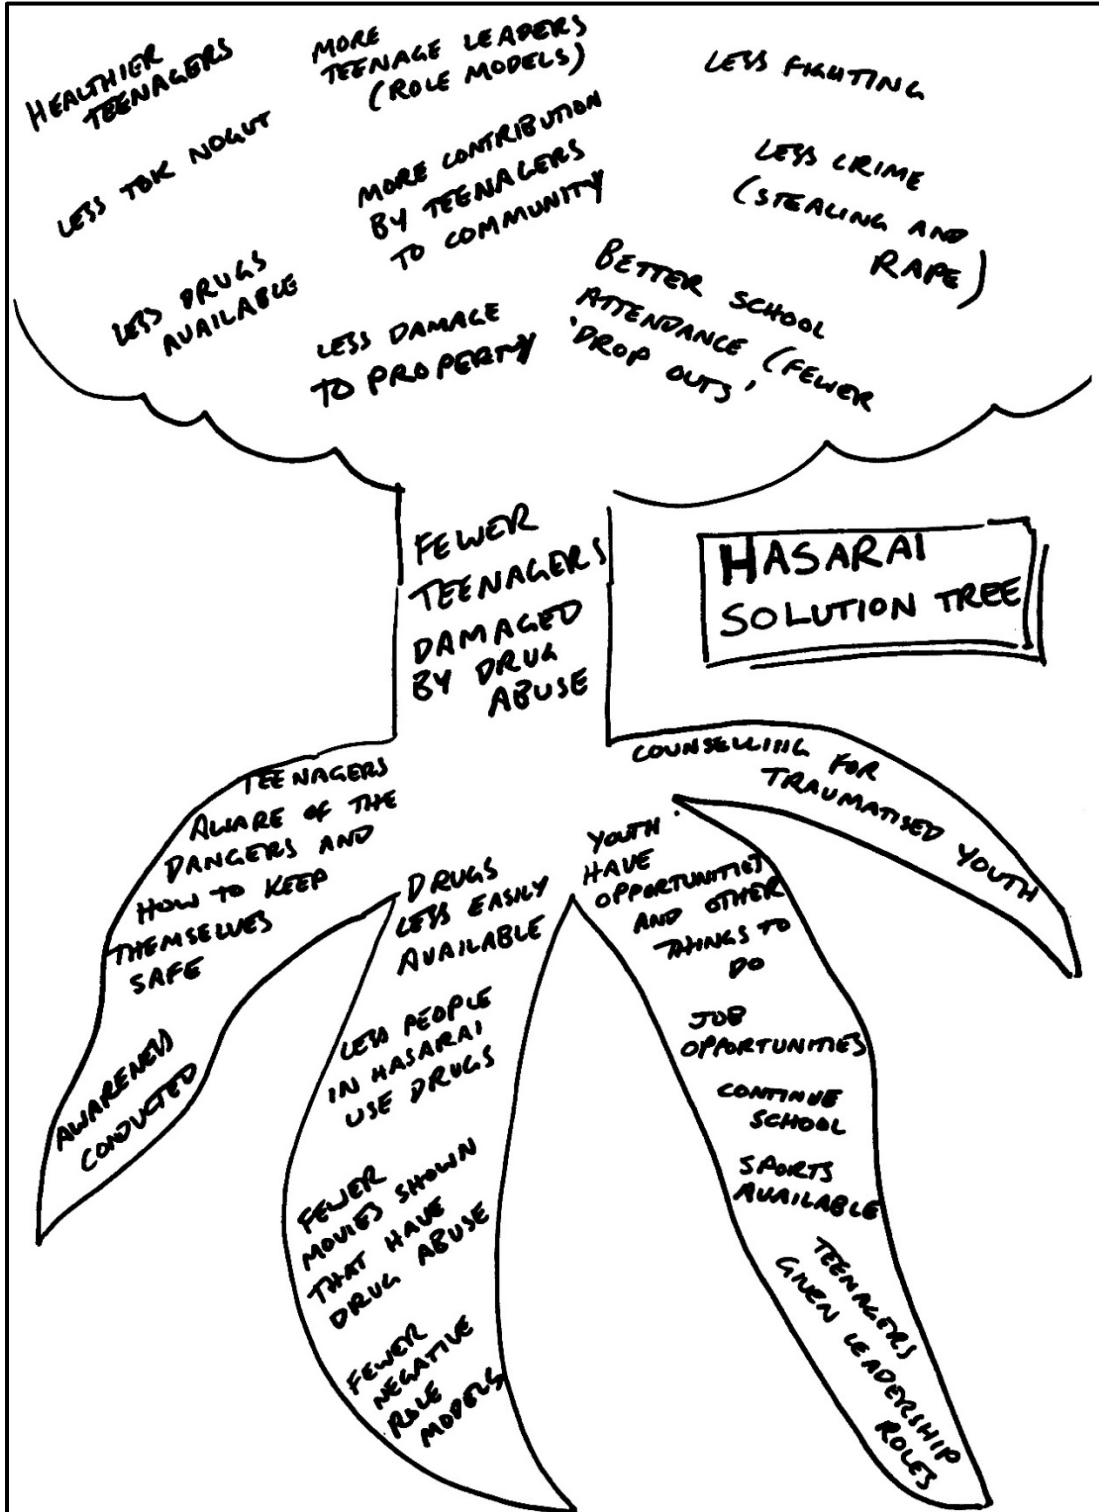 HEALTHIER
TEENAGERS
MORE
TEENAGE LEADERS
(ROLE MODELS)
LESS FIGHTING
LESS TOK NOGUT
MORE CONTRIBUTION
BY TEENAGERS
TO COMMUNITY
LESS CRIME
(STEALING AND
RAPE)
LESS DRUGS
AVAILABLE
LESS DAMAGE
TO PROPERTY
BETTER SCHOOL
ATTENDANCE (FEWER
'DROP OUTS'
FEWER
TEENAGERS
DAMAGED
BY DRUG
ABUSE
HASARAI
SOLUTION TREE
TEENAGERS
AWARE OF THE
DANGERS AND
HOW TO KEEP
THEMSELVES
SAFE
AWARENESS
CONDUCTED
DRUGS
LESS EASILY
AVAILABLE
LESS PEOPLE
IN HASARAI
USE DRUGS
FEWER
MOVIES SHOWN
THAT HAVE
DRUG ABUSE
FEWER
NEGATIVE
ROLE
MODELS
YOUTH
HAVE
OPPORTUNITIES
AND OTHER
THINGS TO
DO
JOB
OPPORTUNITIES
CONTINUE
SCHOOL
SPORTS
AVAILABLE
TEENAGERS
GIVEN LEADERSHIP
ROLES
COUNSELLING FOR
TRAUMATISED YOUTH